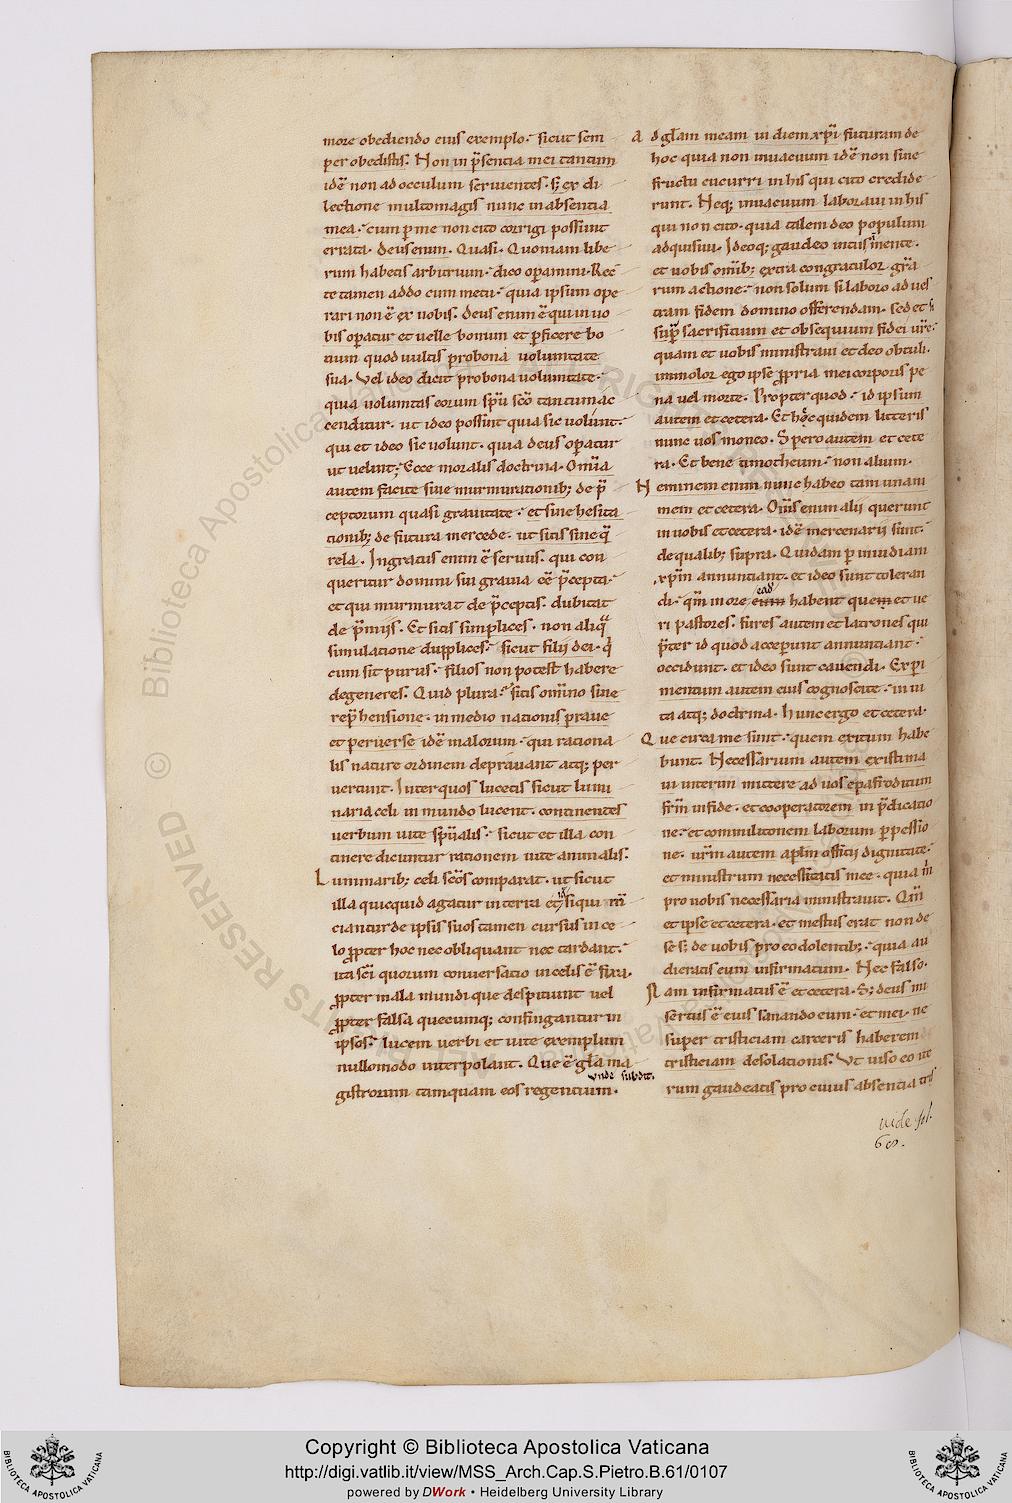 more obediendo eius exemplo. sicut sem
per obedistis. Non in p̄sentia mei tantum
idē non ad occulum seruientes. s; ex di
lectione multomagis nunc in absentia
mea. cum p me non cito corrigi possunt
errata. deus enim. Quasi. Quoniam libe
rum habetis arbitrium. dico opamini. Rec
te tamen addo cum metu. quia ipsum ope
rari non ē ex uobis. deus enim ē qui in uo
bis opatur et uelle bonum et pficere bo
num quod uultis pro bona uoluntate
sua. Vel ideo dicit pro bona uoluntate.
quia uoluntas eorum spū scō tantum ac
cenditur. ut ideo possint quia sic uolunt.
qui et ideo sic uolunt. quia deus opatur
ut uelint; Ecce moralis doctrina. Omīa
autem facite sine murmurationib; de p̄
ceptorum quasi grauitate. et sine hesita
tionib; de futura mercede. ut sitis sine q̄
rela. Ingratus enim ē seruus. qui con
queritur domini sui grauia eē p̄cepta.
et qui murmurat de p̄ceptis. dubitat
de p̄mijs. Et sitis simplices. non aliq̄
simulatione dupplices. sicut filij dei. q̄
cum sit purus. filios non potest habere
degeneres. Quid plura. sitis omīno sine
rep̄hensione. in medio nationis praue
et peruerse idē malorum. qui rationa
lis nature ordinem deprauant atq; per
uertunt. Inter quos lucetis sicut lumi
naria celi in mundo lucent. continentes
uerbum uite spūalis. sicut et illa con
tinere dicuntur rationem uite animalis.
Luminarib; celi scōs comparat. ut sicut
illa quicquid agatur in terra et si qui
de ipsis suos tamen cursus in ce
lo ppter hoc nec obliquant nec tardant.
ita scī quorum conuersatio in celis ē fixa.
ppter mala mundi que despitiunt uel
ppter falsa quecumq; confingantur in
ipsos. lucem uerbi et uite exemplum
nullomodo interpolant. Que ē gła ma
unde subdit.
gistrorum tamquam eos regentium.
Ad głam meam in diem xp̄i futuram de
hoc quia non inuacuum idē non sine
fructu cucurri in his qui cito credide
runt. Neq; inuacuum laboraui in his
qui non cito. quia talem deo populum
adquisiui. Ideoq; gaudeo intus in mente.
et uobis omīb; extra congratulor grā
rum actione. non solum si laboro ad ues
tram fidem domino offerendam. sed et si
sup̄ sacrifitium et obsequium fidei ur̄e.
quam et uobis ministraui et deo obtuli.
immolor ego ipse ppria mei corporis pe
na uel morte. Propter quod. id ipsum
autem et cetera. Et hęc quidem litteris
nunc uos moneo. Spero autem et cete
ra. Et bene timotheum. non alium.
Neminem enim nunc habeo tam unani
mem et cetera. Om̄s enim alij querunt
in uobis et cetera. idē mercenarij sunt.
de qualib; supra. Quidam p inuidiam
xp̄m annunciant. et ideo sunt toleran
ead
di. qm̄ in ore eum habent quem et ue
ri pastores. fures autem et latrones qui
p̄ter id quod acceperunt annuntiant.
occidunt. et ideo sunt cauendi. Experi
mentum autem eius cognoscite. in ui
ta atq; doctrina. Hunc ergo et cetera.
Que circa me sunt. quem exitum habe
bunt. Necessarium autem existima
ui interim mittere ad uos epafroditum
fr̄m in fide. et cooperatorem in p̄dicatio
ne. et commilitonem laborum ppessio
ne. ur̄m autem aplm̄ officij dignitate.
et ministrum necessitatis mee. quia m̄
pro uobis necessaria ministrauit. Qm̄
et ipse et cetera. et mestus erat non de
se s; de uobis pro eo dolentib;. quia au
dieratis eum infirmatum. Nec falso.
Nam infirmatus ē et cetera. S; deus mi
sertus ē eius sanando eum. et mei. ne
super tristiciam carceris haberem
tristiciam desolationis. Vt uiso eo ite
rum gaudeatis pro cuius absentia tris
uide fol.
68.
Copyright © Biblioteca Apostolica Vaticana
http://digi.vatlib.it/view/MSS_Arch.Cap.S.Pietro.B.61/0107
powered by DWork • Heidelberg University Library
BIBLIOTECA APOSTOLICA VATICANA
BIBLIOTECA APOSTOLICA VATICANA
© Biblioteca Apostolica Vaticana ALL RIGHTS RESERVED